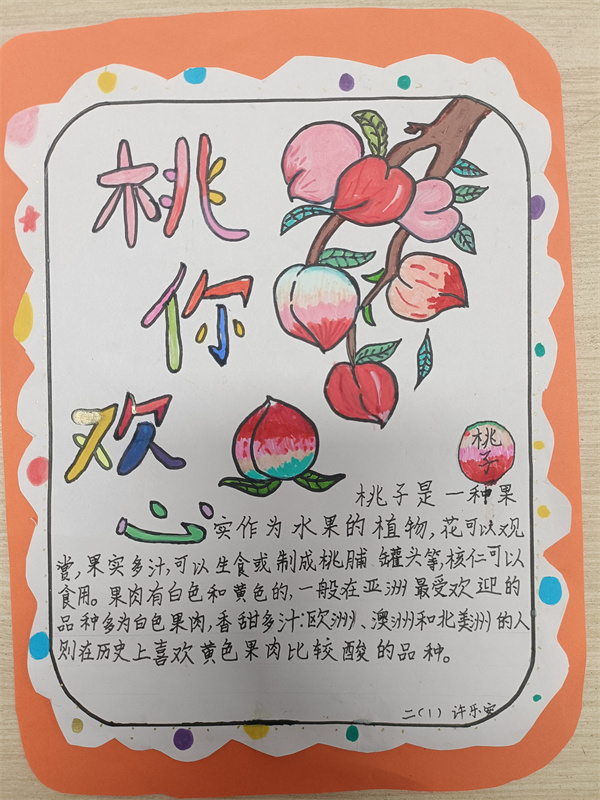 桃
你
欢
心
桃
子
桃子是一种果
实作为水果的植物,花可以观
赏,果实多汁,可以生食或制成桃脯 罐头等,核仁可以
食用。果肉有白色和黄色的,一般在亚洲最受欢迎的
品种多为白色果肉,香甜多汁:欧洲、澳洲和北美洲的人
则在历史上喜欢黄色果肉比较酸的品种。
二(1) 许乐